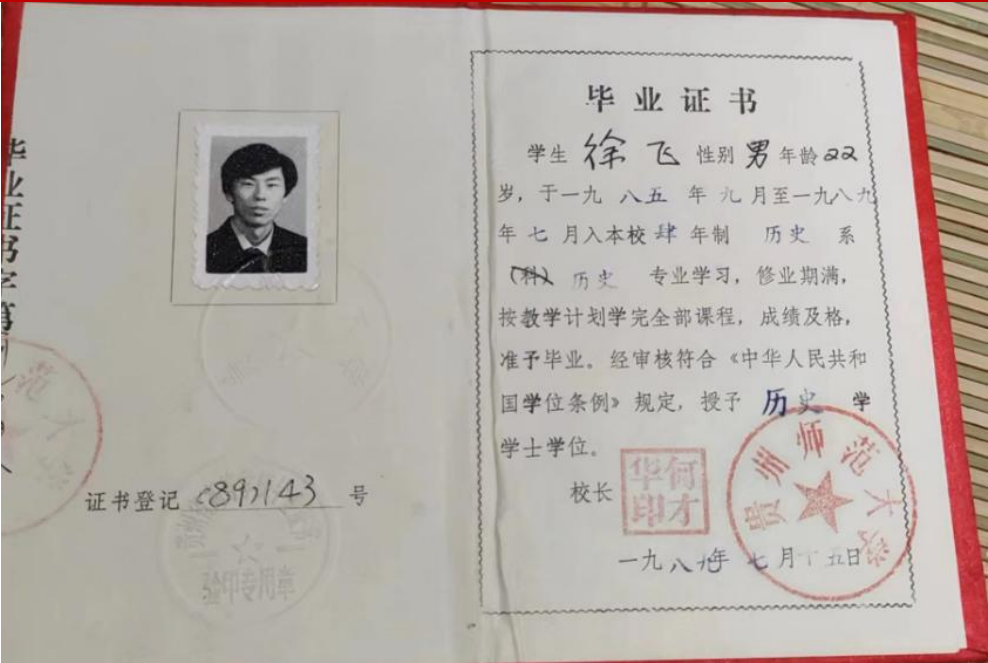 毕业证书字第
证书登记 (89)143 号
验印专用章
毕业证书
学生 徐飞 性别 男 年龄 22
岁，于一九八五年九月至一九八九
年七月入本校肆年制 历史 系
（科）历史 专业学习，修业期满，
按教学计划学完全部课程，成绩及格，
准予毕业。经审核符合《中华人民共和
国学位条例》规定，授予 历史 学
学士学位。
校长
何才华印
贵州师范大学
一九八九年七月十五日